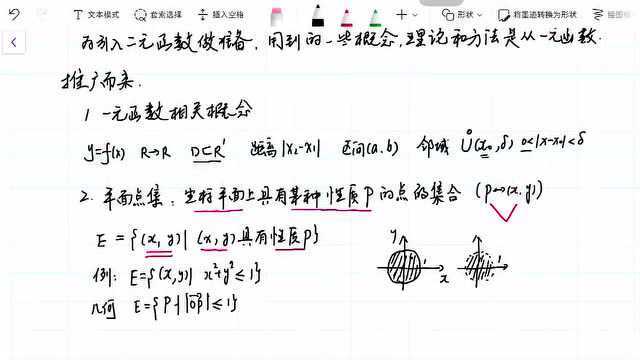 文本模式 套索选择 插入空格 形状 将墨迹转换为形状
为引入二元函数做准备,用到的一些概念,理论和方法是从一元函数.
推广而来.
1 一元函数相关概念
y=f(x) R→R D⊂R¹ 距离|x₂-x₁| 区间(a,b) 邻域 Ů(x₀,δ) 0<|x-x₀|<δ
2. 平面点集:坐标平面上具有某种性质P的点的集合 (P↔(x,y))
E={(x,y)|(x,y)具有性质P}
例:E={(x,y)| x²+y²≤1}
几何 E={P||OP|≤1}
y
1
x
1